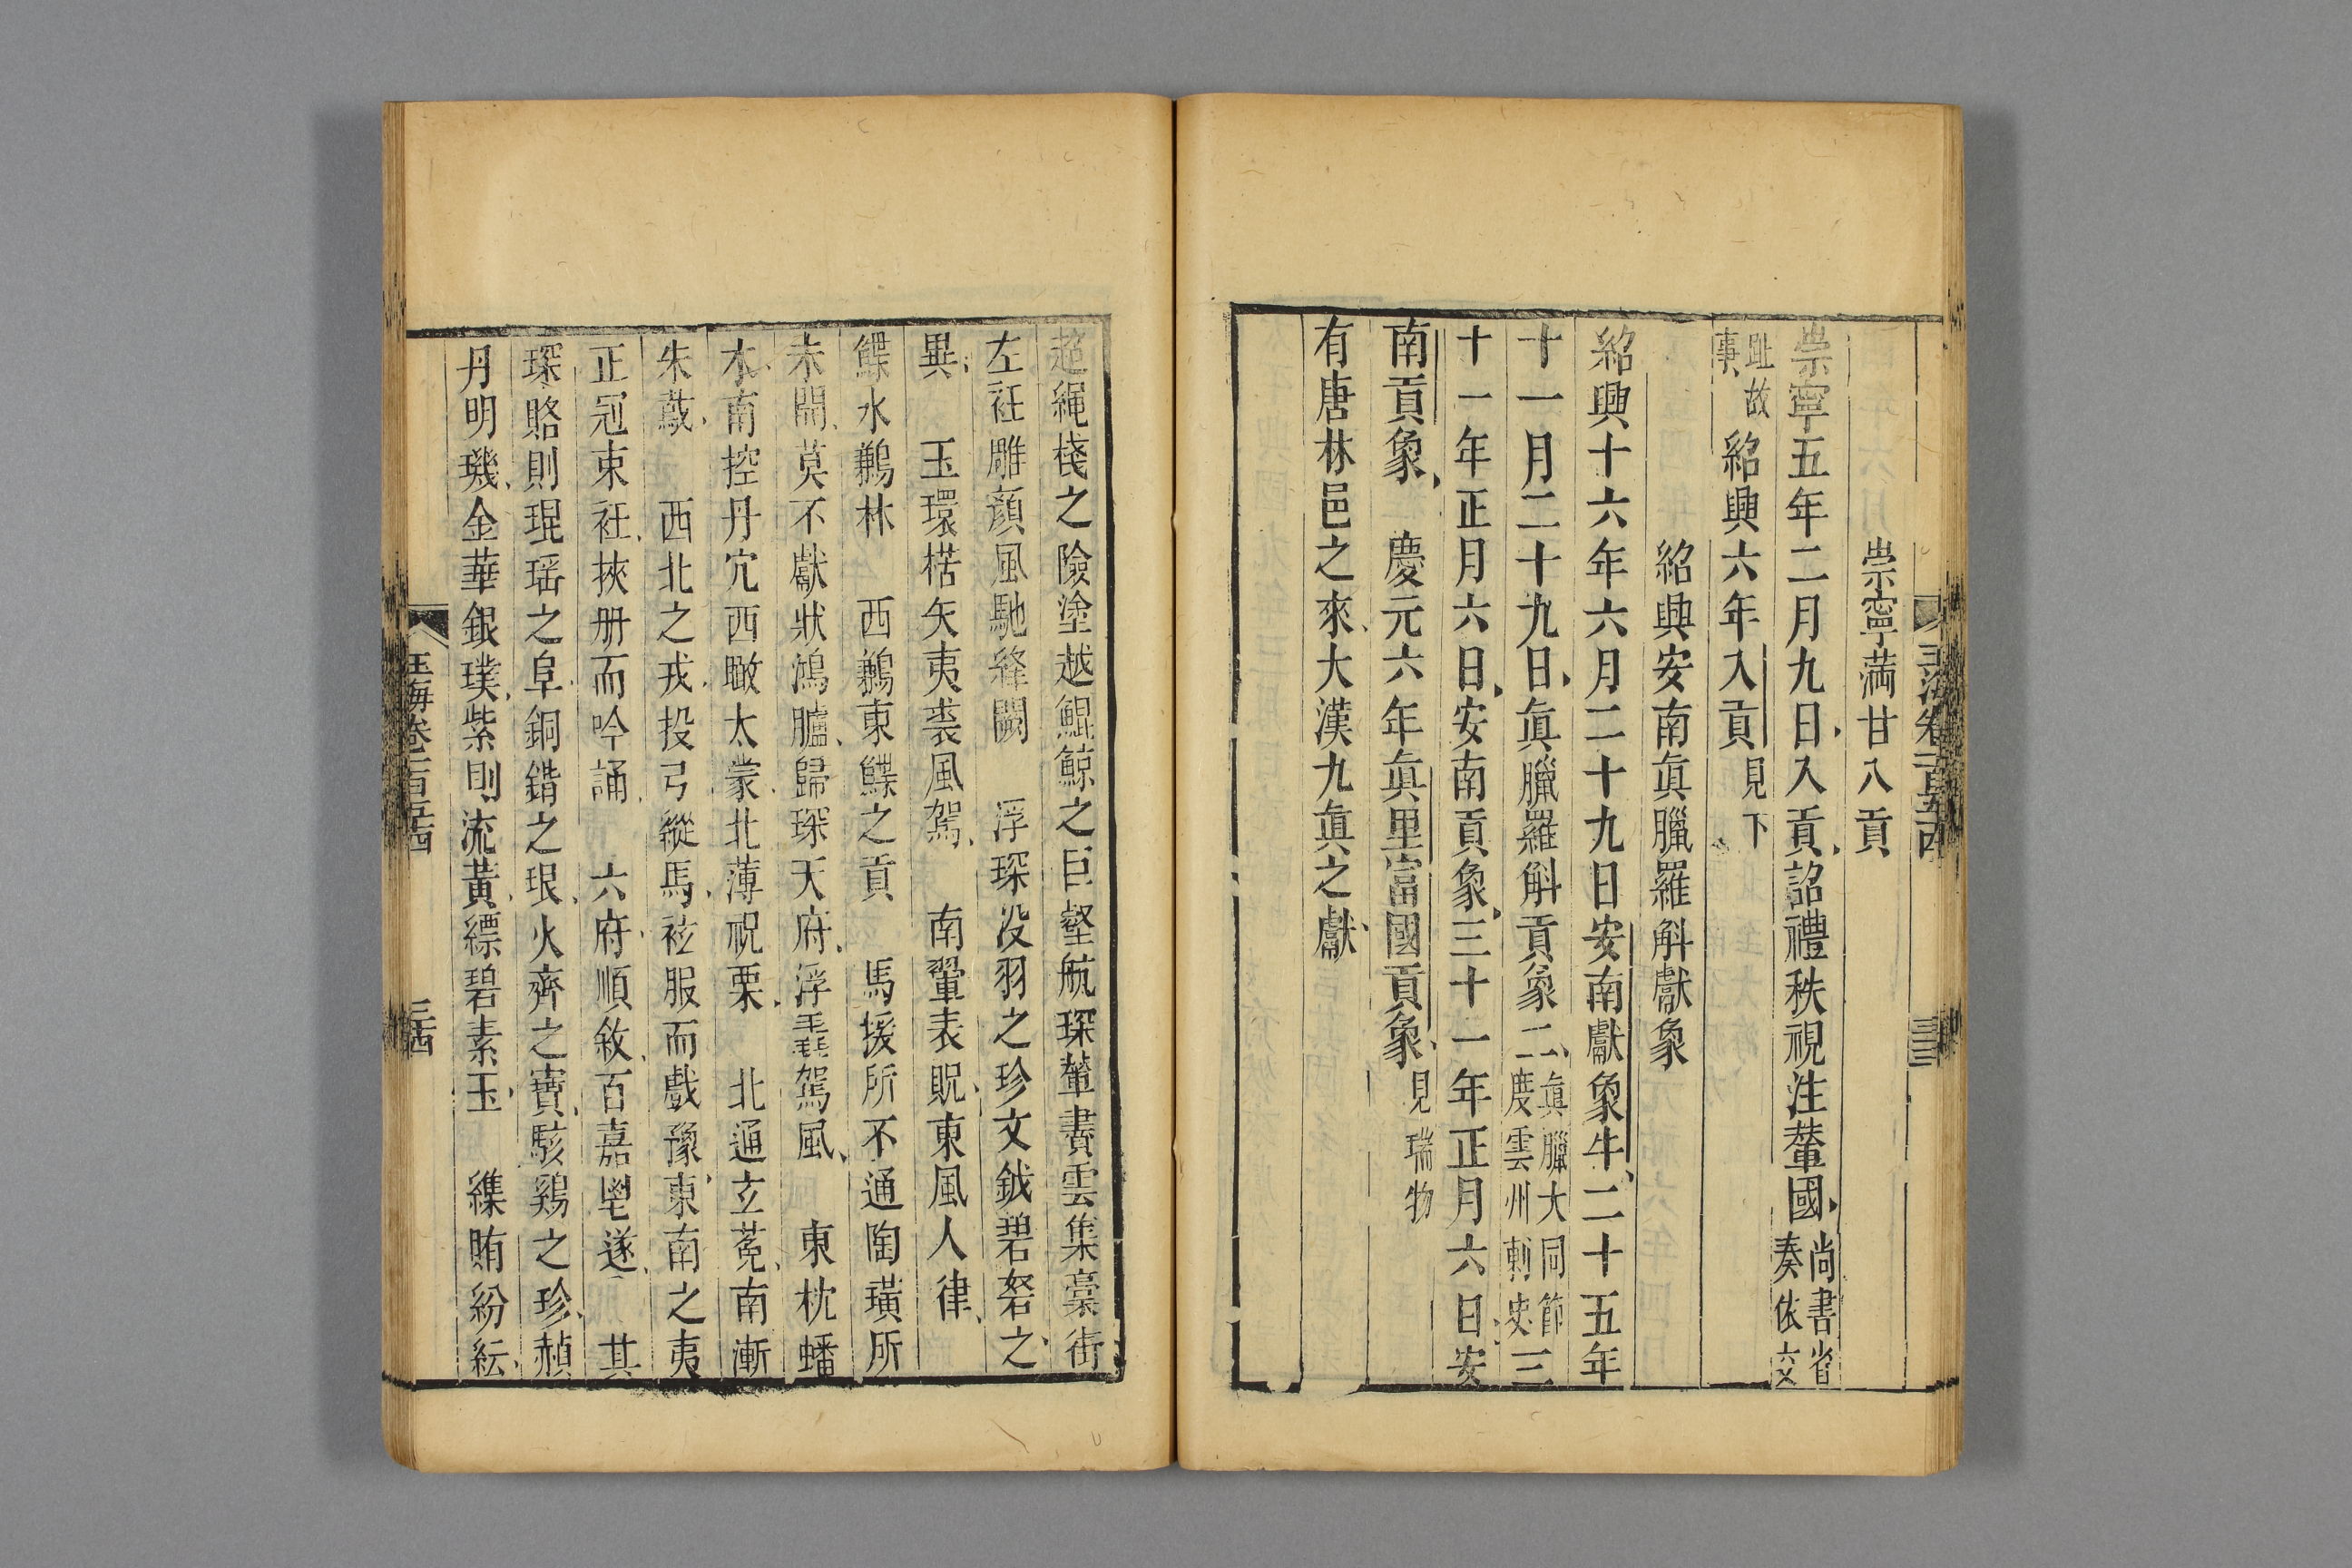 崇寧蒲甘入貢
崇寧五年二月九日入貢詔禮秩視注輦國尚書省奏依交
趾故事紹興六年入貢見下
紹興安南眞臘羅斛獻象
紹興十六年六月二十九日安南獻象牛二十五年
十一月二十九日眞臘羅斛貢象二眞臘大同節度雲州刺史三
十一年正月六日安南貢象三十一年正月六日安
南貢象 慶元六年眞里富國貢象見瑞物
有唐林邑之來大漢九眞之獻
超繩棧之險塗越鯤鯨之巨壑航琛輦賮雲集藁街
左衽雕顔風馳絳闕 浮琛没羽之珍文鉞碧砮之
異 玉環楛矢夷裘風駕 南翬表貺東風人律
鰈水鶼林 西鶼東鰈之貢 馬援所不通陶璜所
未開莫不獻狀鴻臚歸琛天府浮毳駕風 東枕蟠
木南控丹宂西瞰太蒙北薄祝栗 北通玄菟南漸
朱蔵 西北之戎投弓縱馬袨服而戲豫東南之夷
正冠束衽挾册而吟誦 六府順敘百嘉鬯遂 其
琛賂則琨瑶之阜銅鍇之垠火齊之寶駭鷄之珍赬
丹明璣金華銀璞紫則流黃縹碧素玉 繅賄紛紜
玉海卷一百五十四